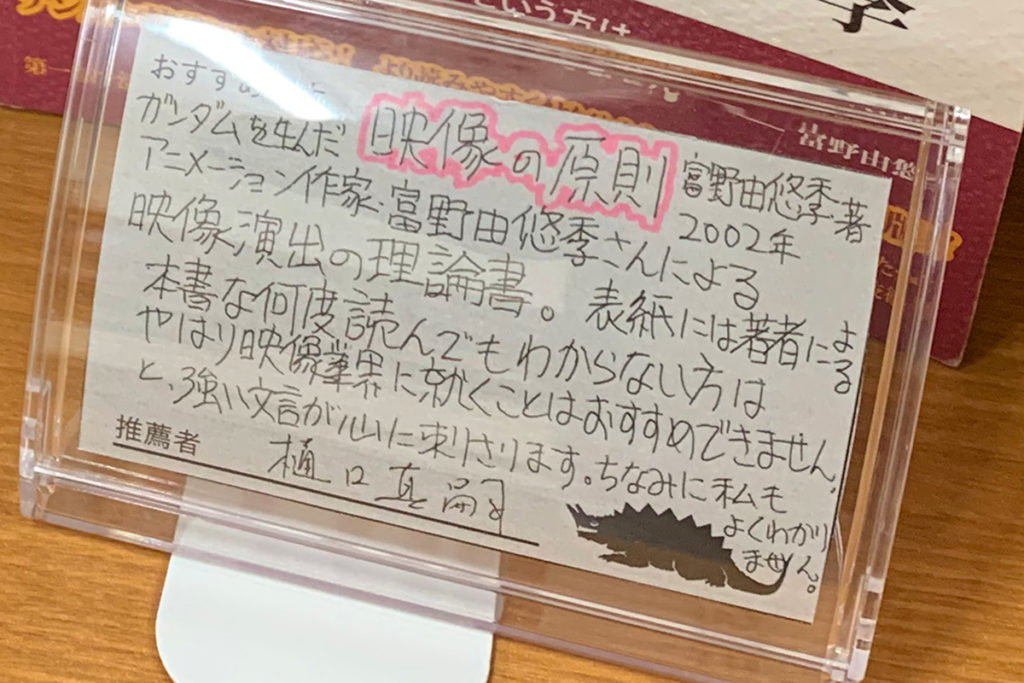 という方は
季
富野由悠
第一
おすすめ
映像の原則
富野由悠季・著
2002年
ガンダムを生んだ
アニメーション作家・富野由悠季さんによる
映像演出の理論書。表紙には著者による
本書な何度読んでもわからない方は
やはり映像業界に就くことはおすすめできません、
と、強い文言が心に刺さります。ちなみに私も
よくわかり
ません。
推薦者
樋口真嗣